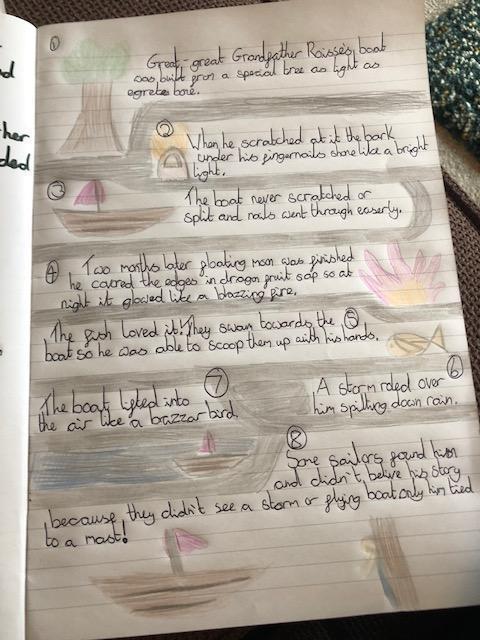 ①
Great, great Grandfather Raisse's boat
was built from a special tree as light as
egrets bone.
②
When he scratched at it the bark
under his fingernails shone like a bright
light.
③
The boat never scratched or
split and nails went through easerly.
④ Two months later floating moon was finished
he carred the edges in dragon fruit sap so at
night it glowed like a blazzing fire.
The fish loved it! They swam towards the ⑤
boat so he was able to scoop them up with his hands.
⑥
A storm rded over
him spilling down rain.
⑦
The boat lifted into
the air like a bazzar bird.
⑧
Some sailors found him
and didn't belive his story
because they didn't see a storm or flying boat only him tied
to a mast!
nd
her
ded